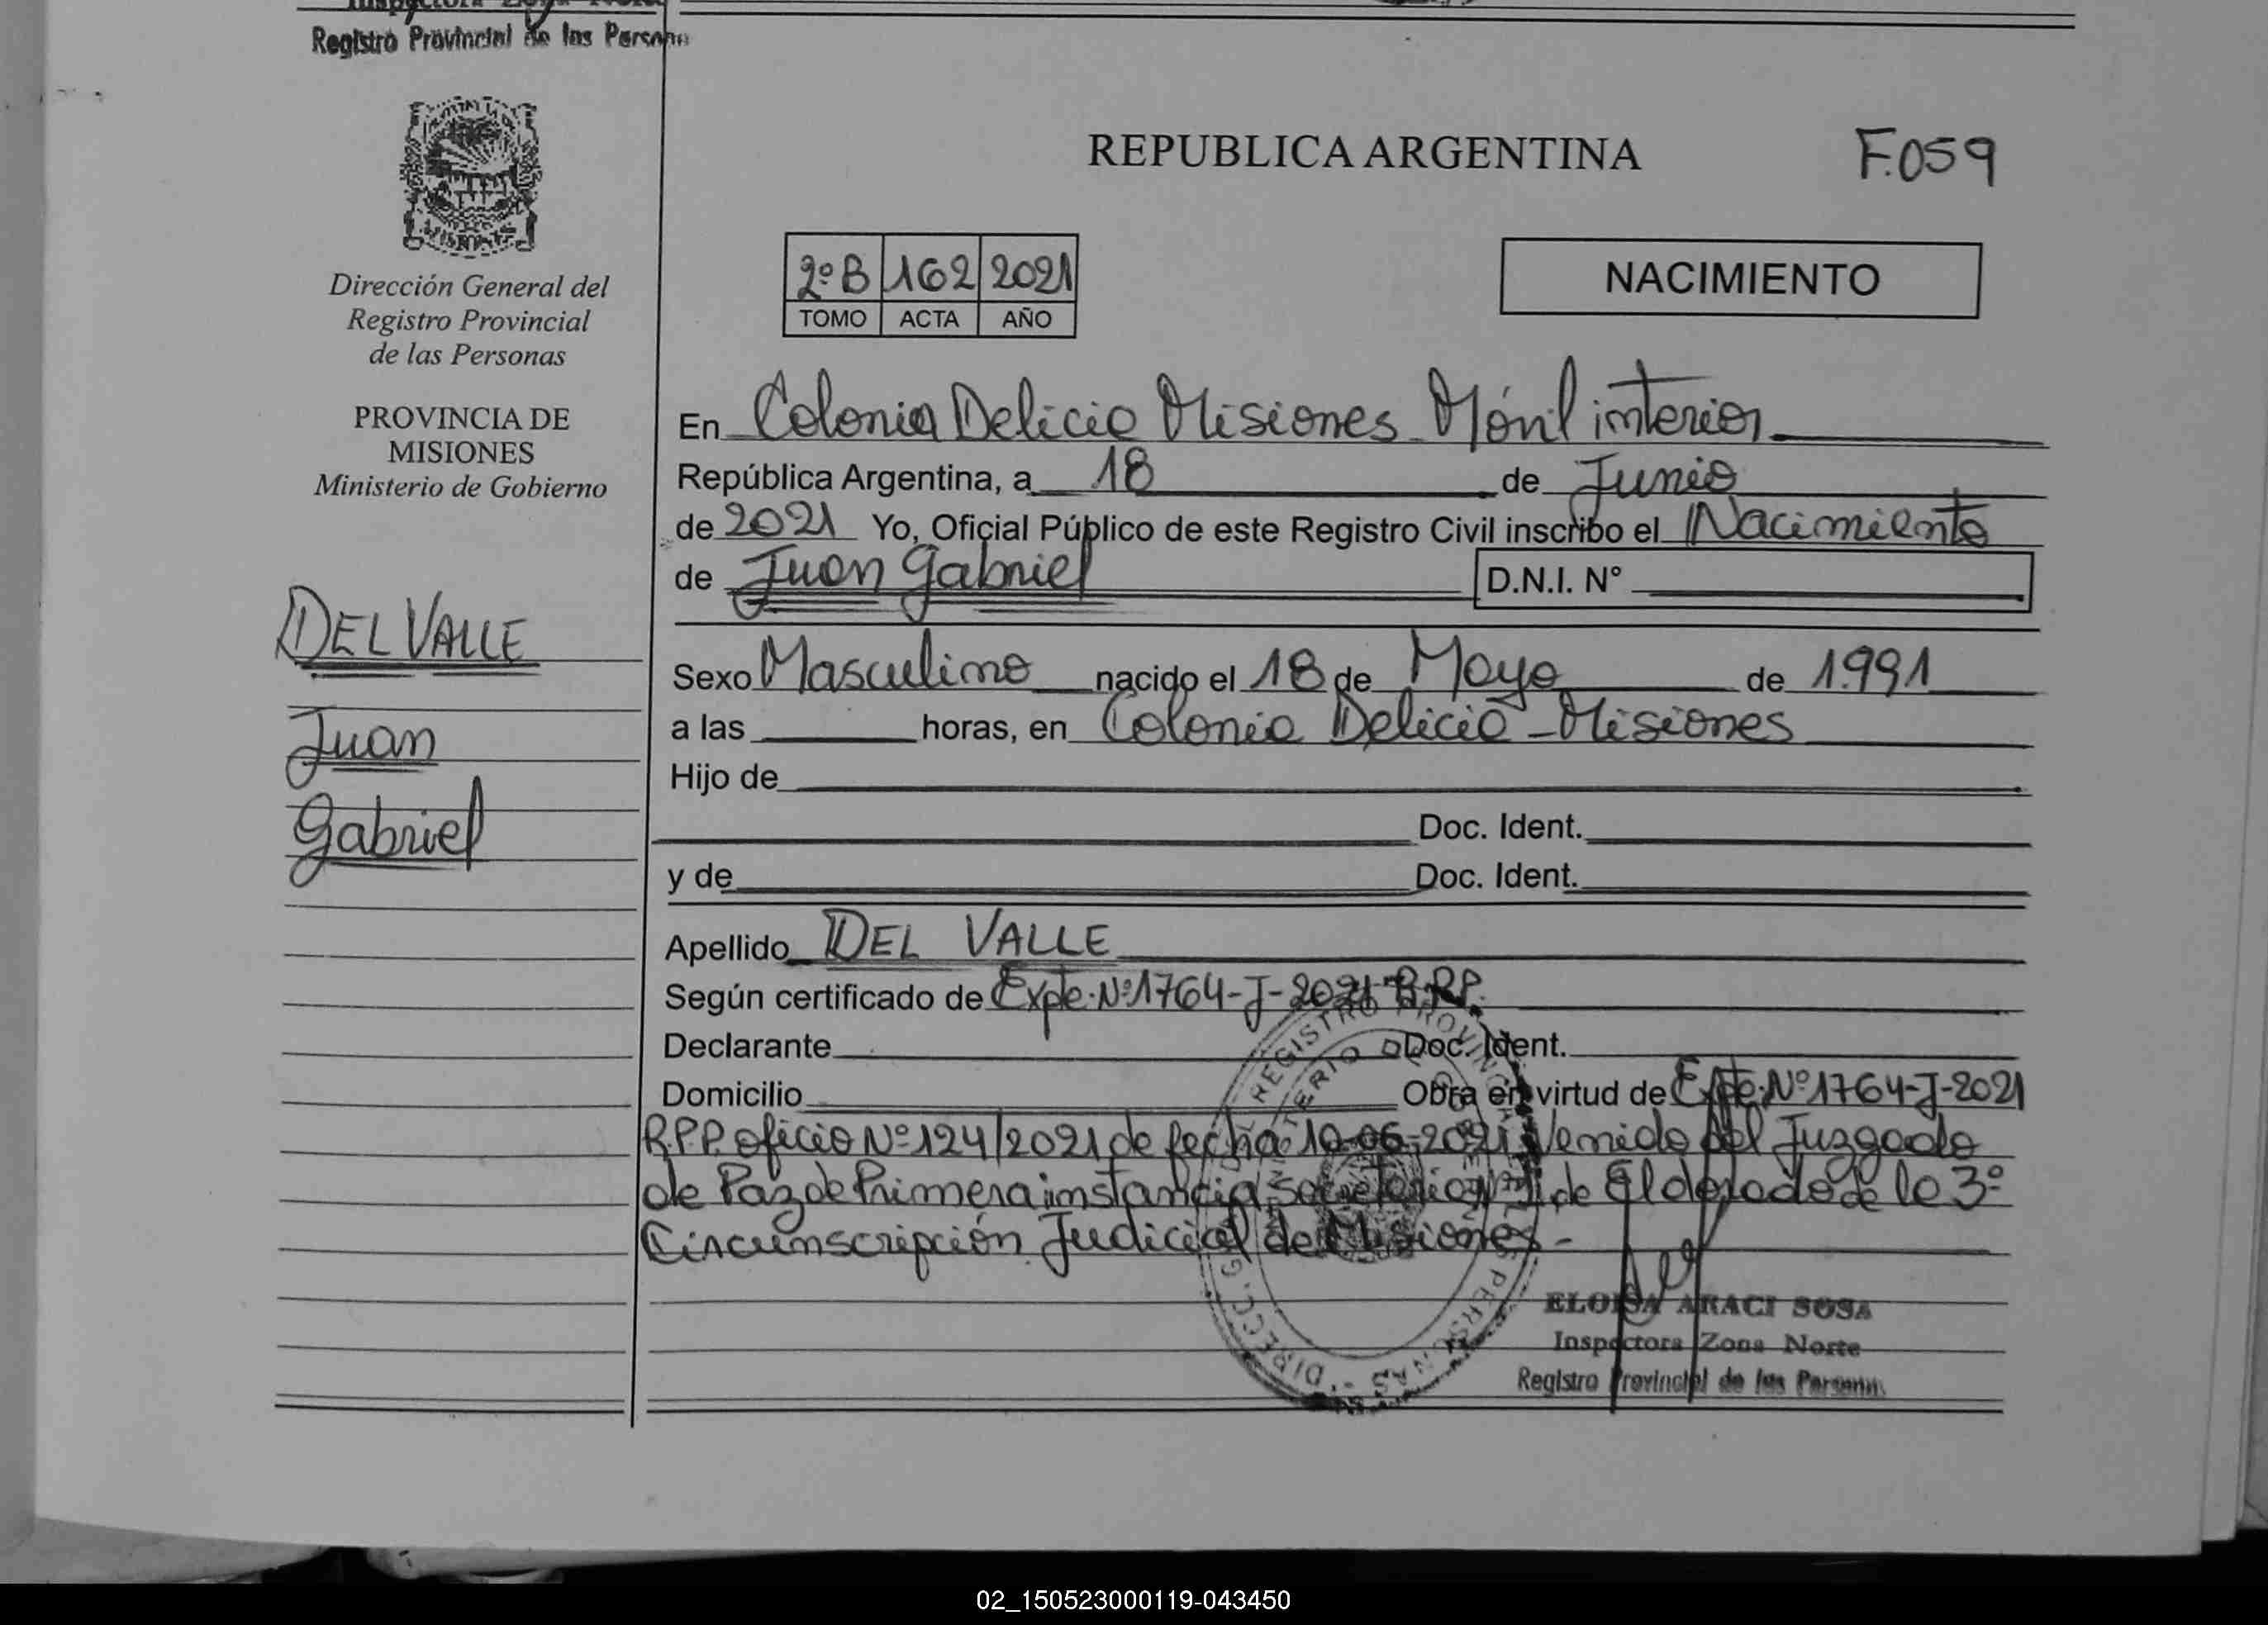 Registro Provincial de las Persona
REPUBLICA ARGENTINA
F.059
2ºB 162 2021
TOMO ACTA AÑO
NACIMIENTO
Dirección General del
Registro Provincial
de las Personas
PROVINCIA DE
MISIONES
Ministerio de Gobierno
DEL VALLE
Juan
Gabriel
En Colonia Delicia Misiones Móvil interior
República Argentina, a 18 de Junio
de 2021 Yo, Oficial Público de este Registro Civil inscribo el Nacimiento
de Juan Gabriel D.N.I. N°
Sexo Masculino nacido el 18 de Mayo de 1.991
a las horas, en Colonia Delicia - Misiones
Hijo de
Doc. Ident.
y de Doc. Ident.
Apellido DEL VALLE
Según certificado de Expte. Nº 1764-J-2021 R.P.P.
Declarante Doc. Ident.
Domicilio Obra en virtud de Expte. Nº 1764-J-2021
R.P.P. oficio Nº 124/2021 de fecha 10-06-2021 Venido del Juzgado
de Paz de Primera instancia de Eldorado de la 3º
Circunscripción Judicial de Misiones -
ELOISA ARACI SOSA
Inspectora Zona Norte
Registro Provincial de las Personas
REGISTRO PROVINCIAL PERSONAS - DIRECC. G
02_150523000119-043450